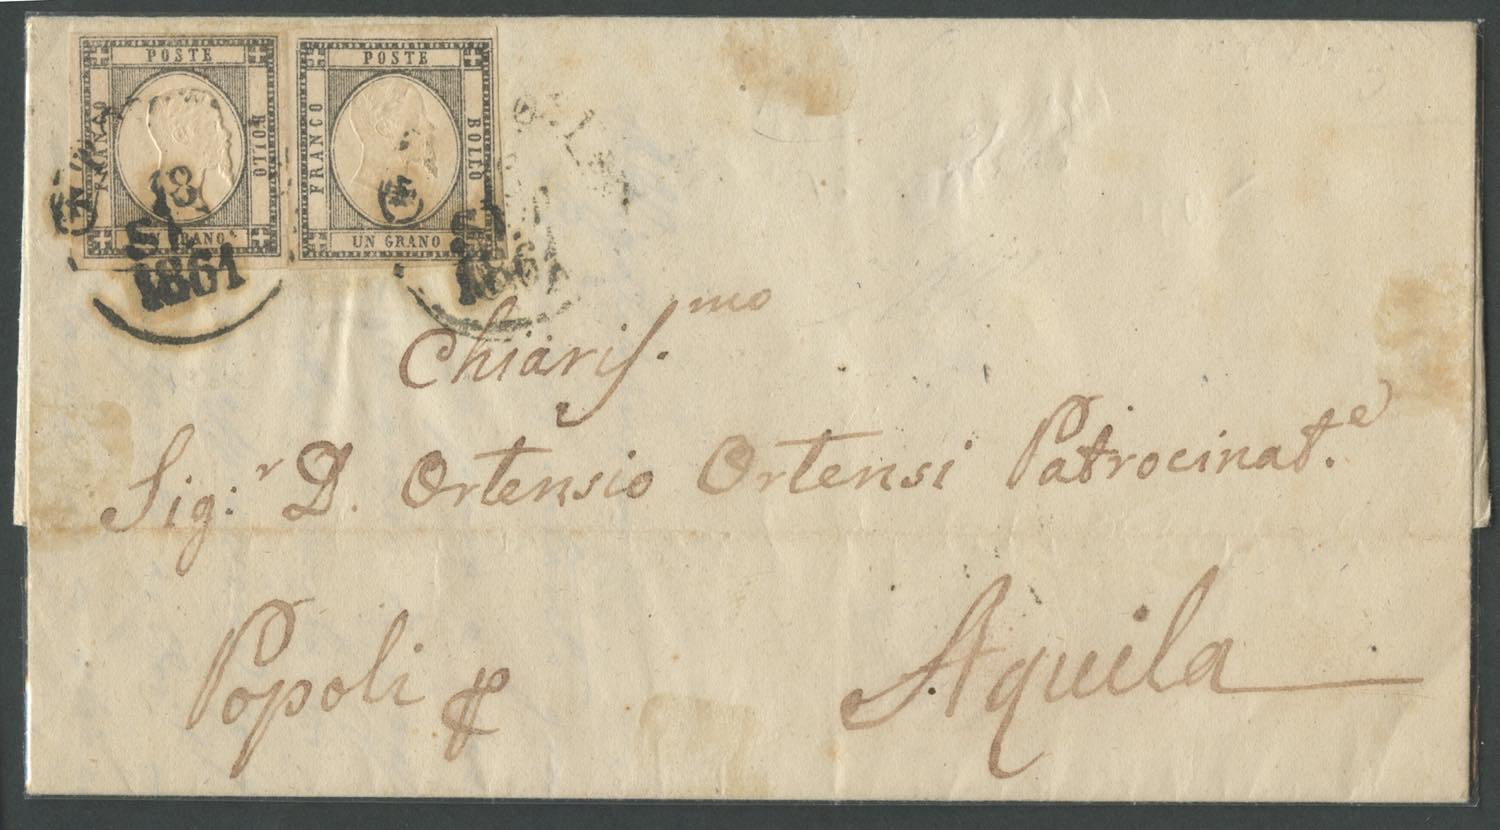 POSTE
FRANCO
BOLLO
UN GRANO
POSTE
FRANCO
BOLLO
UN GRANO
18
1861
1861
Chiariſ.mo
Sig:r D. Ortensio Ortensi Patrocinat.e
Popoli
Aquila